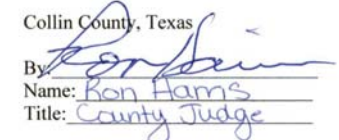 Collin County, Texas
By:
Name: Ron Harris
Title: County Judge